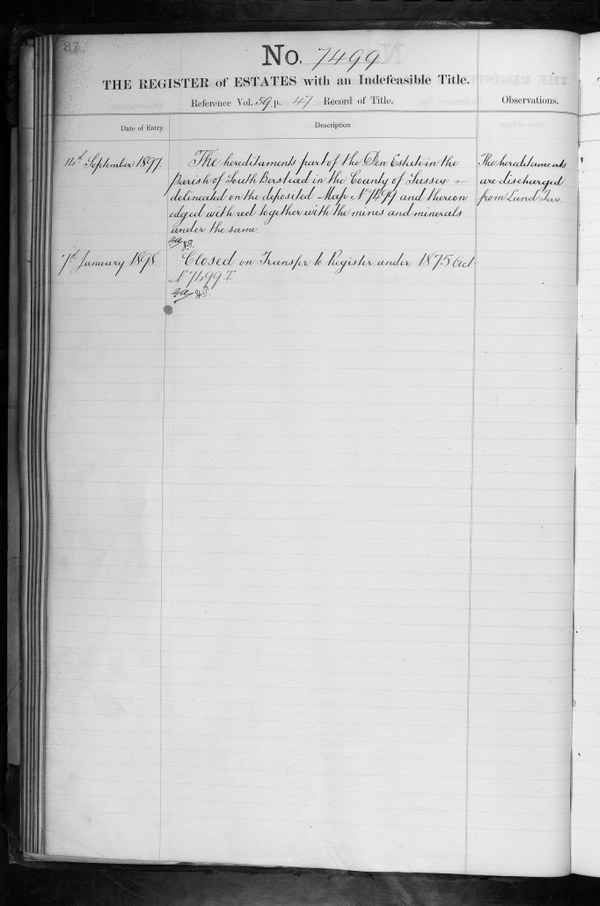 87
No. 7499
THE REGISTER of ESTATES with an Indefeasible Title.
Reference Vol. 59 p. 47. Record of Title.
Observations.
Date of Entry
Description
September 1897.
The hereditaments part of the Den Estate in the
Parish of South Berstead in the County of Sussex
delineated on the deposited Map No 7499 and thereon
edged with red together with the mines and minerals
under the same.
The hereditaments
are discharged
from Land Tax.
7th January 1898.
Closed on Transfer to Register under 1875 Act
No 7499 I